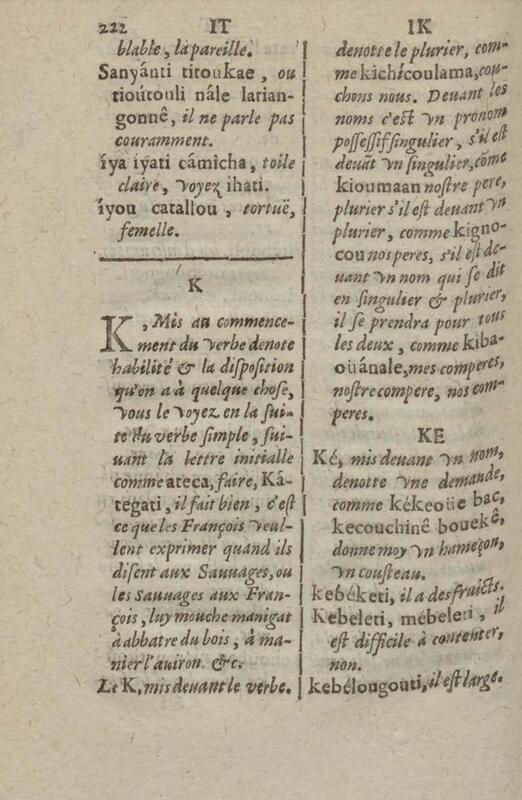 222 IT
blable, la pareille.
Sanyánti titoukae, ou
tioútouli nâle latian-
gonnê, il ne parle pas
couramment.
íya iyati cámicha, toile
claire, voyez ihati.
íyou catallou, tortuë,
femelle.
K
K, Mis au commence-
ment du verbe denote
habilité & la disposition
qu'on a à quelque chose,
vous le voyez en la sui-
te du verbe simple, sui-
uant la lettre initialle
comme ateca, faire, Ká-
tegati, il fait bien, c'est
ce que les François veul-
lent exprimer quand ils
disent aux Sauuages, ou
les Sauuages aux Fran-
çois, luy mouche manigat
à abbatre du bois, à ma-
nier l'auiron &c.
Le K, mis deuant le verbe.
IK
denotte le plurier, com-
me kichícoulama, cou-
chons nous. Deuant les
noms c'est vn pronom
possessif singulier, s'il est
deuāt vn singulier, cōme
kioumaan nostre pere,
plurier s'il est deuant vn
plurier, comme kigno-
cou nos peres, s'il est de-
uant vn nom qui se dit
en singulier & plurier,
il se prendra pour tous
les deux, comme kiba-
oüánale, mes comperes,
nostre compere, nos com-
peres.
KE
Ké, mis deuant vn nom,
denotte vne demande,
comme kékeoüe bac,
kecouchinê bouekê,
donne moy vn hameçon,
vn cousteau.
kebéketi, il a des fruicts.
Kebeleti, mébeleti, il
est difficile à contenter,
non.
kebélougouti, il est large.